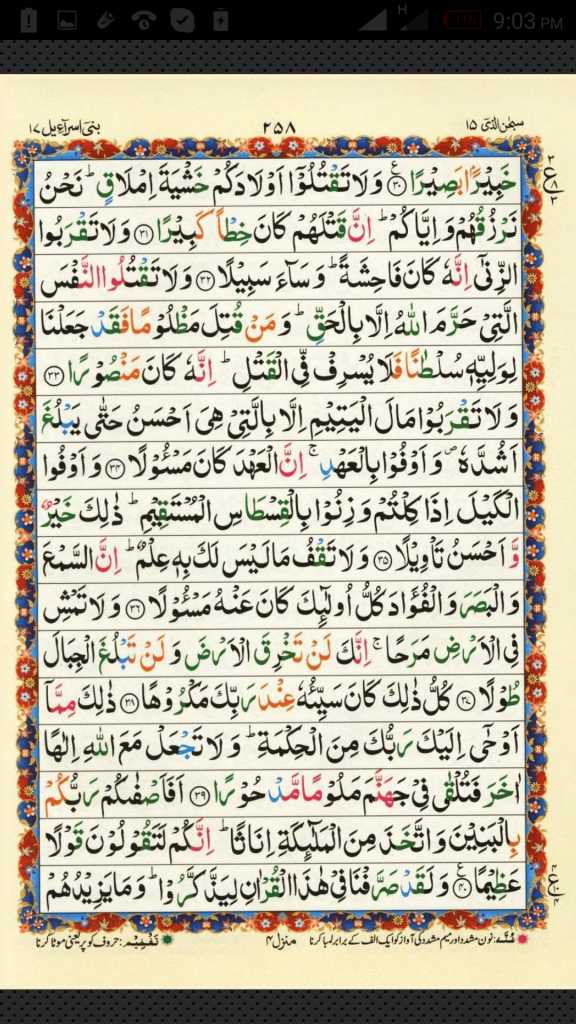 H 11% 9:03 PM
سبحٰن الذی ۱۵ ۲۵۸ بنی اسرآءیل ۱۷
خَبِیْرًۢا بَصِیْرًا ۝۳۰ وَ لَا تَقْتُلُوْۤا اَوْلَادَكُمْ خَشْیَةَ اِمْلَاقٍ ؕ نَحْنُ
نَرْزُقُهُمْ وَ اِیَّاكُمْ ؕ اِنَّ قَتْلَهُمْ كَانَ خِطْاً كَبِیْرًا ۝۳۱ وَ لَا تَقْرَبُوا
الزِّنٰۤی اِنَّهٗ كَانَ فَاحِشَةً ؕ وَ سَآءَ سَبِیْلًا ۝۳۲ وَ لَا تَقْتُلُوا النَّفْسَ
الَّتِیْ حَرَّمَ اللهُ اِلَّا بِالْحَقِّ ؕ وَ مَنْ قُتِلَ مَظْلُوْمًا فَقَدْ جَعَلْنَا
لِوَلِیِّهٖ سُلْطٰنًا فَلَا یُسْرِفْ فِّی الْقَتْلِ ؕ اِنَّهٗ كَانَ مَنْصُوْرًا ۝۳۳
وَ لَا تَقْرَبُوْا مَالَ الْیَتِیْمِ اِلَّا بِالَّتِیْ هِیَ اَحْسَنُ حَتّٰی یَبْلُغَ
اَشُدَّهٗ ۪ وَ اَوْفُوْا بِالْعَهْدِ ۚ اِنَّ الْعَهْدَ كَانَ مَسْـُٔوْلًا ۝۳۴ وَ اَوْفُوا
الْكَیْلَ اِذَا كِلْتُمْ وَ زِنُوْا بِالْقِسْطَاسِ الْمُسْتَقِیْمِ ؕ ذٰلِكَ خَیْرٌ
وَّ اَحْسَنُ تَاْوِیْلًا ۝۳۵ وَ لَا تَقْفُ مَا لَیْسَ لَكَ بِهٖ عِلْمٌ ؕ اِنَّ السَّمْعَ
وَ الْبَصَرَ وَ الْفُؤَادَ كُلُّ اُولٰٓىِٕكَ كَانَ عَنْهُ مَسْـُٔوْلًا ۝۳۶ وَ لَا تَمْشِ
فِی الْاَرْضِ مَرَحًا ۚ اِنَّكَ لَنْ تَخْرِقَ الْاَرْضَ وَ لَنْ تَبْلُغَ الْجِبَالَ
طُوْلًا ۝۳۷ كُلُّ ذٰلِكَ كَانَ سَیِّئُهٗ عِنْدَ رَبِّكَ مَكْرُوْهًا ۝۳۸ ذٰلِكَ مِمَّاۤ
اَوْحٰۤی اِلَیْكَ رَبُّكَ مِنَ الْحِكْمَةِ ؕ وَ لَا تَجْعَلْ مَعَ اللهِ اِلٰهًا
اٰخَرَ فَتُلْقٰی فِیْ جَهَنَّمَ مَلُوْمًا مَّدْحُوْرًا ۝۳۹ اَفَاَصْفٰىكُمْ رَبُّكُمْ
بِالْبَنِیْنَ وَ اتَّخَذَ مِنَ الْمَلٰٓىِٕكَةِ اِنَاثًا ؕ اِنَّكُمْ لَتَقُوْلُوْنَ قَوْلًا
عَظِیْمًا ۝۴۰ وَ لَقَدْ صَرَّفْنَا فِیْ هٰذَا الْقُرْاٰنِ لِیَذَّكَّرُوْا ؕ وَ مَا یَزِیْدُهُمْ
غُنَّہ: نون مشدد اور میم مشدد کی آواز کو ایک الف کے برابر لمبا کرنا منزل ۴ تفخیم: حروف کو پُر یعنی موٹا کرنا